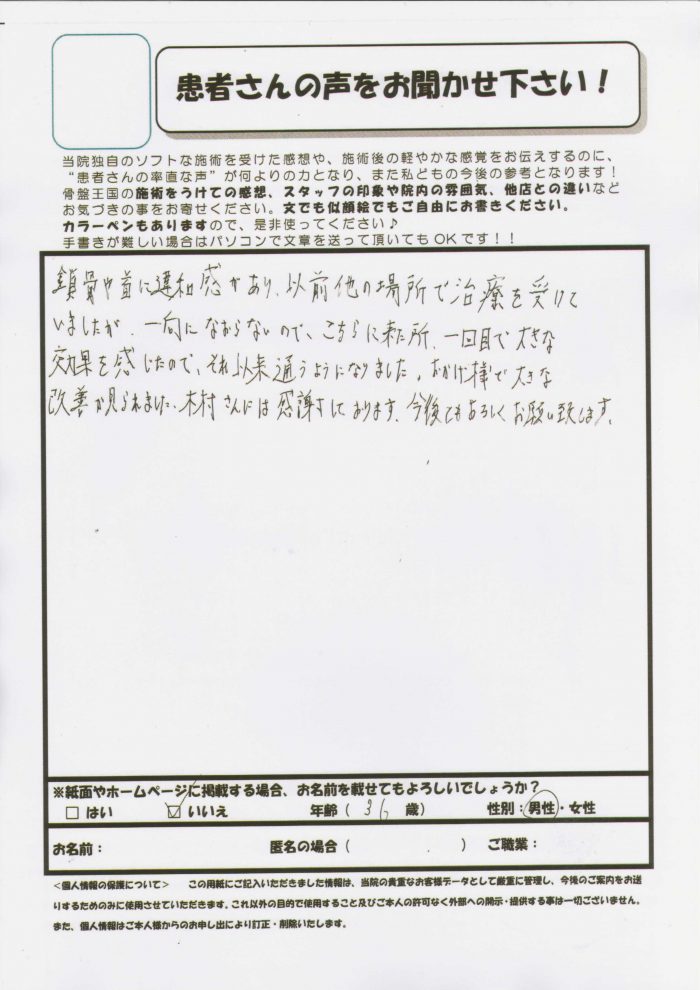 患者さんの声をお聞かせ下さい！
当院独自のソフトな施術を受けた感想や、施術後の軽やかな感覚をお伝えするのに、
“患者さんの率直な声”が何よりの力となり、また私どもの今後の参考となります！
骨盤王国の施術をうけての感想、スタッフの印象や院内の雰囲気、他店との違いなど
お気づきの事をお寄せください。文でも似顔絵でもご自由にお書きください。
カラーペンもありますので、是非使ってください♪
手書きが難しい場合はパソコンで文章を送って頂いてもOKです！！
鎖骨や首に違和感があり、以前他の場所で治療を受けて
いましたが、一向になおらないので、こちらに来た所、一回目で大きな
効果を感じたので、それ以来通うようになりました。おかげ様で大きな
改善が見られました。木村さんには感謝しております。今後ともよろしくお願い致します。
※紙面やホームページに掲載する場合、お名前を載せてもよろしいでしょうか？
□ はい ☑ いいえ 年齢（ 36 歳） 性別：男性・女性
お名前： 匿名の場合（ ） ご職業：
＜個人情報の保護について＞ この用紙にご記入いただきました情報は、当院の貴重なお客様データとして厳重に管理し、今後のご案内をお送
りするためのみに使用させていただきます。これ以外の目的で使用すること及びご本人の許可なく外部への開示・提供する事は一切ございません。
また、個人情報はご本人様からのお申し出により訂正・削除いたします。